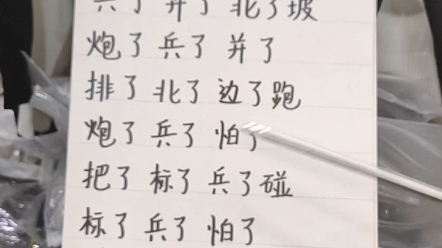 兵了并了北了坡
炮了兵了并了
排了北了边了跑
炮了兵了怕了
把了标了兵了碰
标了兵了怕了